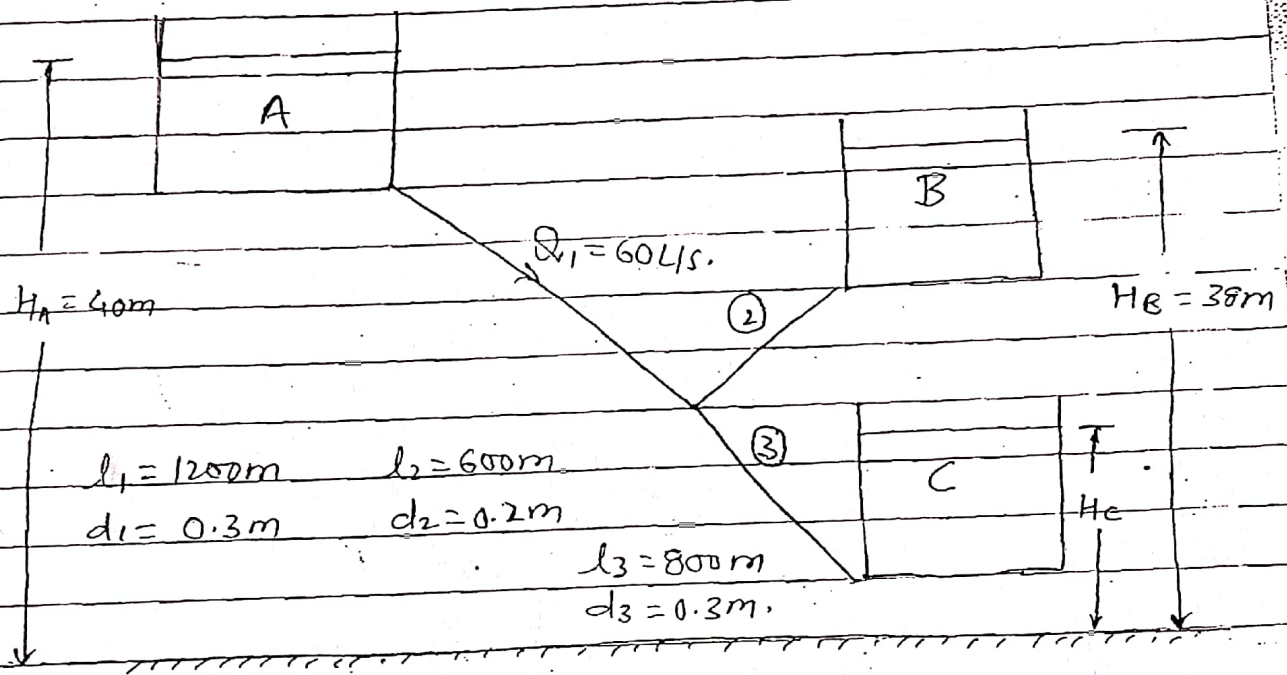 A
B
Q₁ = 60 L/s.
H_A = 40m
②
H_B = 38m
③
C
H_C
l₁ = 1200m l₂ = 600m
d₁ = 0.3m d₂ = 0.2m
l₃ = 800m
d₃ = 0.3m.